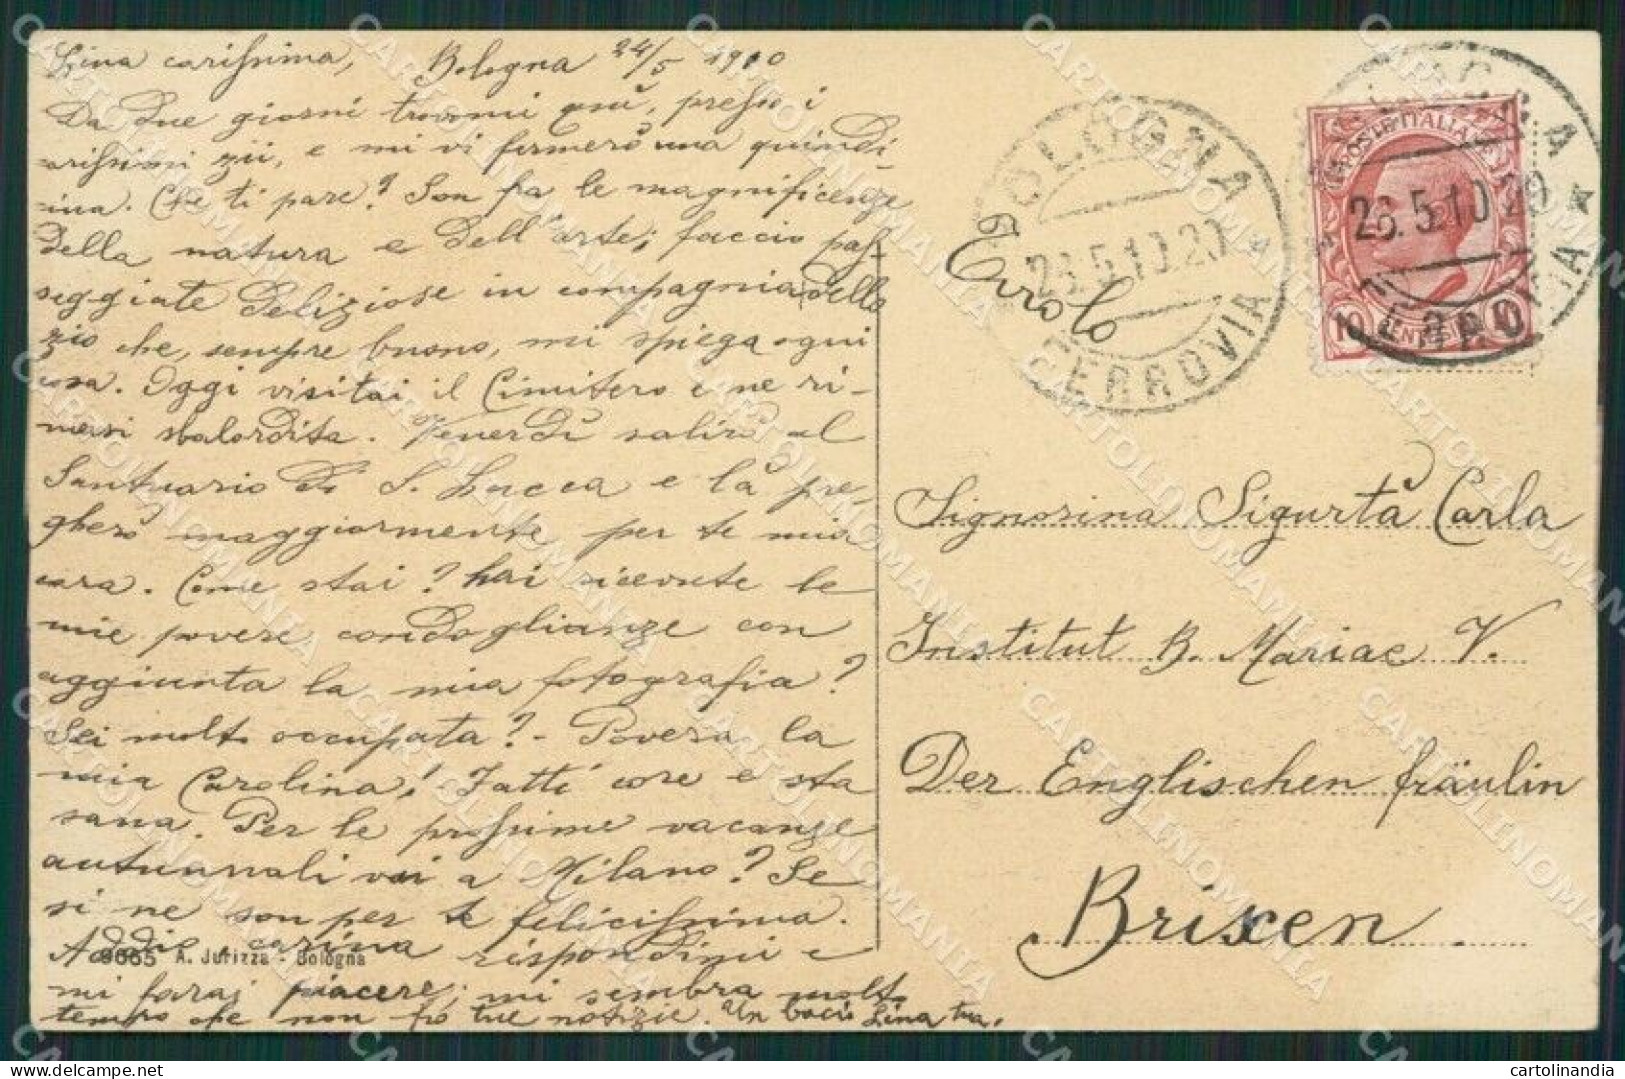 Lina carissima, Bologna 24/5 1910
Da due giorni trovomi quì, presso i
carissimi zii, e mi vi fermerò una quindi-
cina. Che ti pare? Son fra le magnificenze
della natura e dell'arte; faccio pas-
seggiate deliziose in compagnia dello
zio che, sempre buono, mi spiega ogni
cosa. Oggi visitai il Cimitero e ne ri-
masi sbalordita. Venerdì salirò al
Santuario di S. Lucca e là pre-
gherò maggiormente per te mia
cara. Come stai? hai ricevute le
mie povere condoglianze con
aggiunta la mia fotografia?
Sei molto occupata? - Povera la
mia Carolina! Fatti core e sta
sana. Per le prossime vacanze
autunnali vai a Milano? Se
sì ne son per te felicissima.
Addio carina rispondimi e
mi farai piacere; mi sembra molto
tempo che non ho tue notizie. Un bacio Lina tua.
9665 A. Jurizza - Bologna
BOLOGNA
23.5.10.20
FERROVIA
POSTE ITALIANE
26.5.10 20
FERROVIA
10 CENTESIMI 10
Signorina Sigurtà Carla
Institut B. Mariae V.
Der Englischen fräulin
Brixen.
CARTOLINOMANIA
cartolinandia